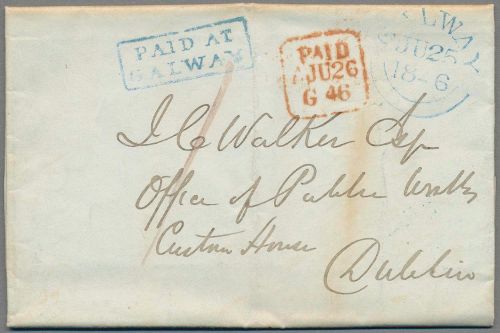 PAID AT
GALWAY
PAID
JU26
G 46
GALWAY
JU 25
1846
J C Walker Esqr
Office of Public Works
Custom House
Dublin